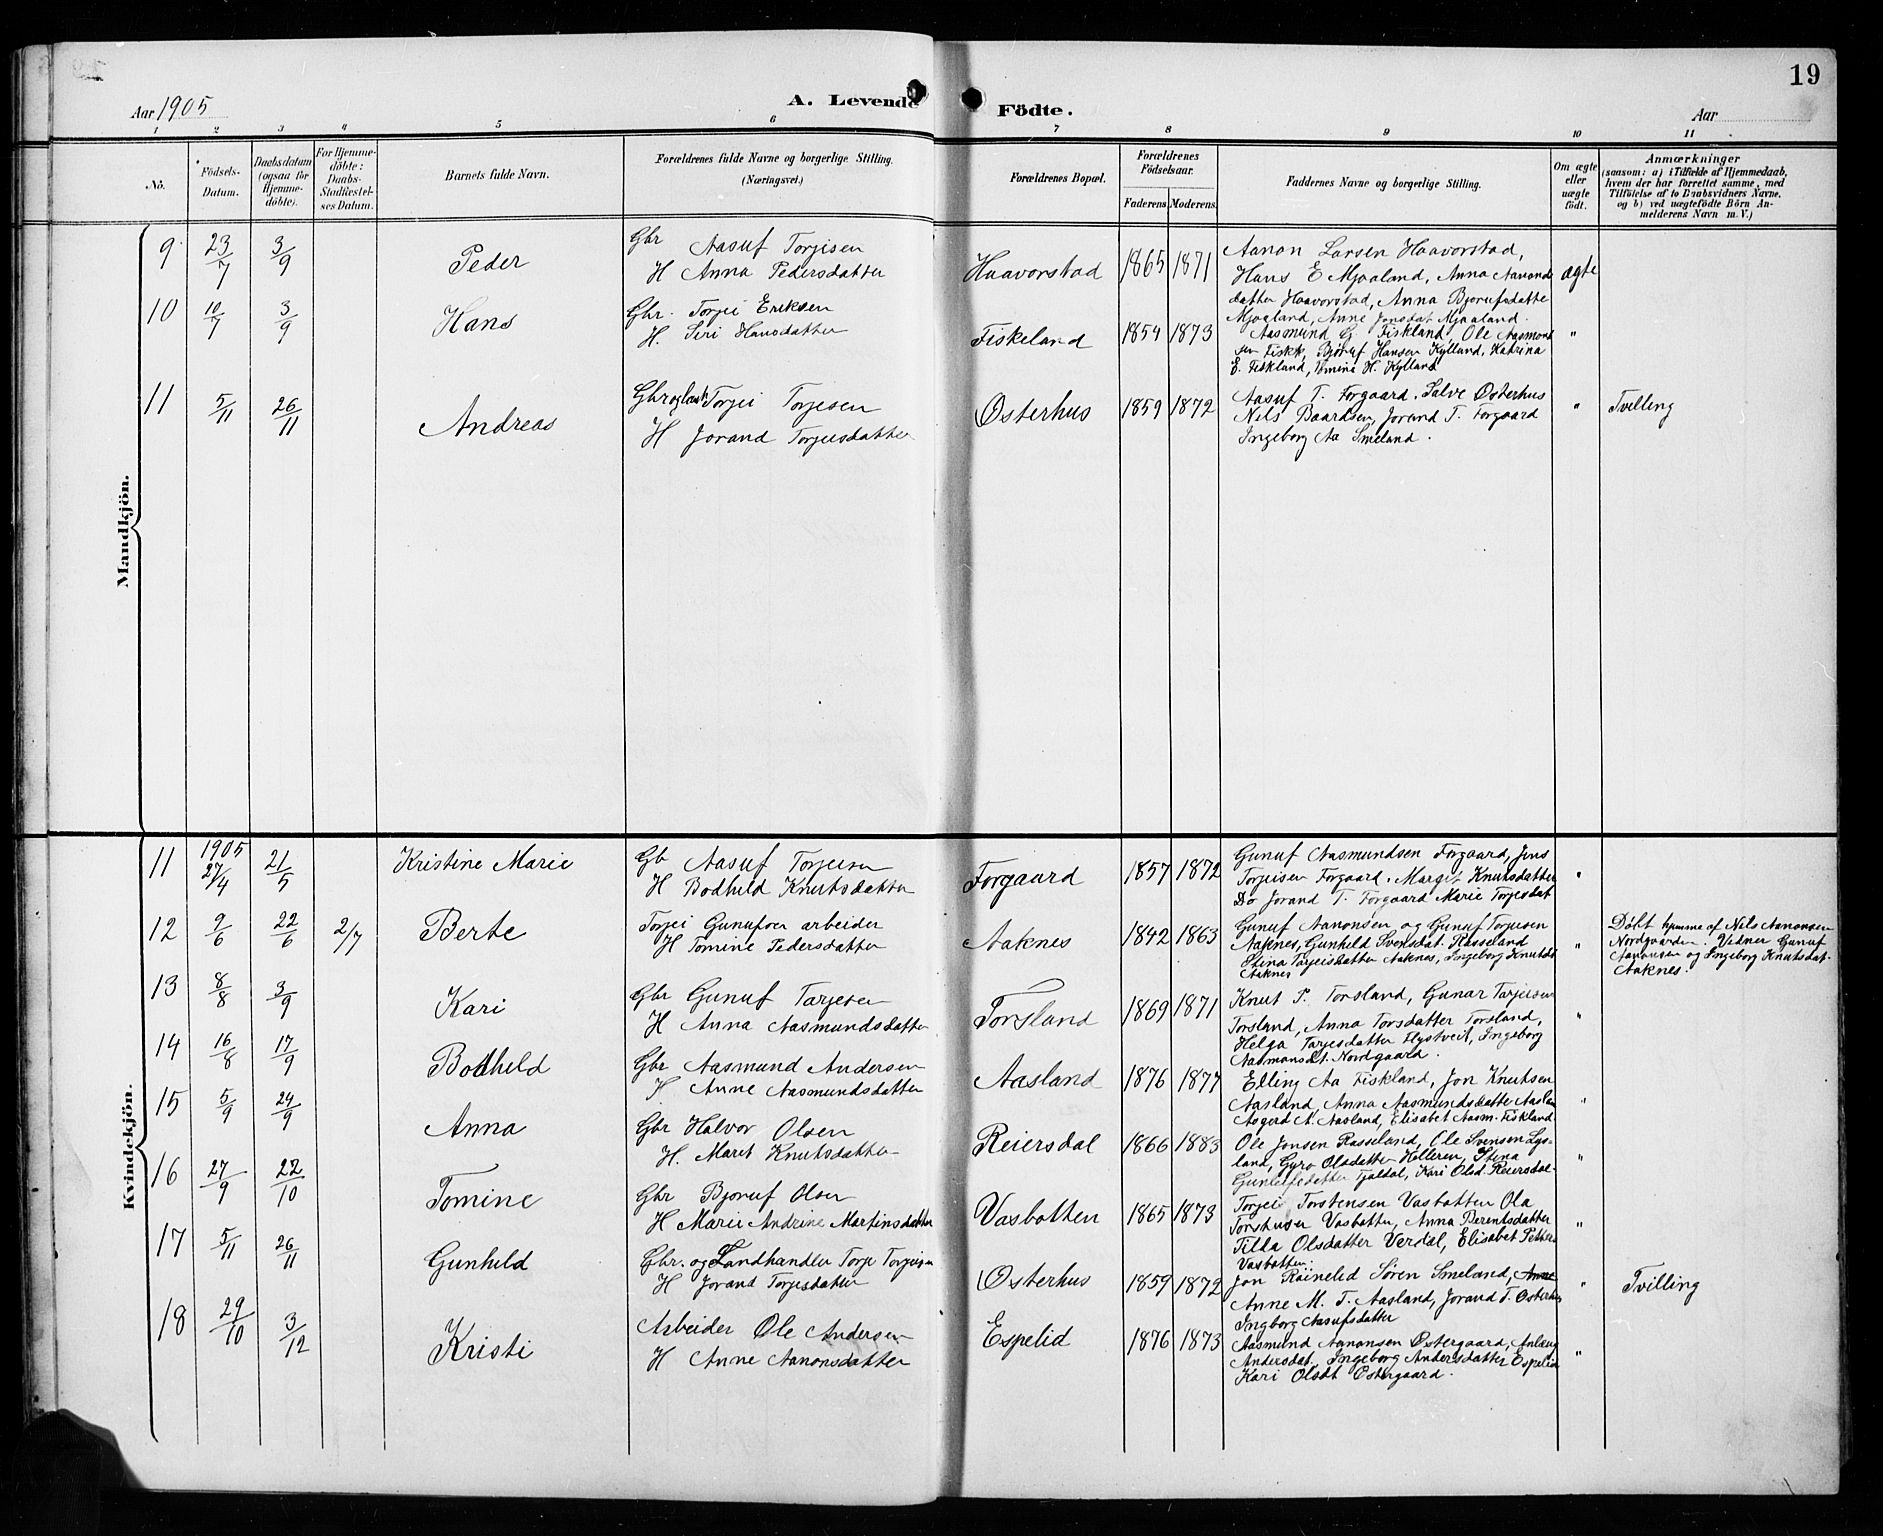 19
Aar 1905
A. Levende Födte.
Aar
1 2 3 4 5 6 7 8 9 10 11
No.
Födsels-Datum.
Daabsdatum (ogsaa for Hjemme-döbte).
For Hjemme-döbte: Daabs-Stadfæstelses Datum.
Barnets fulde Navn.
Forældrenes fulde Navne og borgerlige Stilling. (Næringsvei.)
Forældrenes Bopæl.
Forældrenes Födselsaar.
Faderens. Moderens.
Faddernes Navne og borgerlige Stilling.
Om ægte eller uægte födt.
Anmærkninger
(saasom: a) i Tilfælde af Hjemmedaab, hvem der har forrettet samme, med Tilföielse af to Daabsvidners Navne, og b) ved uægtefödte Börn Anmelderens Navn m. V.)
Mandkjön.
9 23/7 3/9 Peder
Gbr Aasuf Torjisen
H Anna Pedersdatter
Haavorstad 1865 1871
Aanon Larsen Haavorstad,
Hans E Mjaaland, Anna Aanonds
datter Haavorstad, Anna Bjorufsdatte
Mjaaland, Anne Jonsdat Mjaaland.
ægte
10 10/7 3/9 Hans
Gbr. Torjei Eriksen
H. Siri Hansdatter
Fiskeland 1854 1873
Aasmund G Fiskland, Ole Aasmond
sen Fiskl, Bjoruf Hansen Kylland, Katrina
E. Fiskland, Tomina H. Kylland
"
11 5/11 26/11 Andreas
Gbr og landh Torjei Torjesen
H Jorand Torjusdatter
Østerhus 1859 1872
Aasuf T. Forgaard, Salve Østerhus
Nils Baardsen, Jorand T. Forgaard
Ingeborg Aa Smeland.
" Tvilling
Kvindekjön.
11 1905 27/4 21/5 Kristine Marie
Gb Aasuf Torjeisen
H Bodhild Knutsdatter
Forgaard 1857 1872
Gunuf Aasmundsen Forgaard, Jens
Torjeisen Forgaard. Margit Knutsdatter
Do Jorand T. Forgaard Marie Torjesdat
"
12 9/6 22/6 2/7 Berte
Torjei Gunufsen arbeider
H Tomine Pedersdatter
Aaknes 1842 1863
Gunuf Aanonsen og Gunuf Torjusen
Aaknes, Gunhild Svensdat. Rasseland
Stina Tarjeisdatter Aaknes, Ingeborg Knutsdt
Aaknes
"
Døbt hjemme af Nils Aanonsen
Nordgaarden. Vidner Gunuf
Aanonsen og Ingeborg Knutsdat.
Aaknes.
13 8/8 3/9 Kari
Gbr Gunuf Tarjesen
H Anna Aasmundsdatter
Torsland 1869 1871
Knut P. Torsland, Gunar Tarjeisen
Torsland, Anna Torsdatter Torsland,
Helga Tarjesdatter Flystveit, Ingeborg
Aasmonsdt. Nordgaard.
"
14 16/8 17/9 Bodheld
Gbr Aasmund Andersen
H Anne Aasmundsdatter
Aasland 1876 1877
Elling Aa Fiskland, Jon Knutsen
Aasland, Anna Aasmundsdatte Aaslan
Aagerd A. Aasland, Elisabet Aasm. Fiskland
"
15 5/9 24/9 Anna
Gbr Halvor Olsen
H. Marit Knutsdatter
Reiersdal 1866 1883
Ole Jonsen Rasseland, Ole Svensen Lys-
land, Gyro Olsdatter Helleren, Stina
Gunleifsdatter Tjaldal, Kari Olsd. Reiersdal
"
16 27/9 22/10 Tomine
Gbr Bjoruf Olsen
H Marie Andrine Martinsdatter
Vasbotten 1865 1873
Torjei Torstensen Vasbotten Ola
Torstensen Vasbotten, Anna Berentsdatter
Tilda Olsdatter Verdal, Elisabet Petters
Vasbotten.
"
17 5/11 26/11 Gunhild
Gbr. og Landhandler Torje Torjeisen
H Jorand Torjesdatter
Østerhus 1859 1872
Jon Rainelid Søren Smeland, Anne
Anne M. T. Aasland, Jorand T. Østerhus
Ingborg Aasufsdatter
" Tvilling
18 29/10 3/12 Kristi
Arbeider Ole Andersen
H Anne Aanonsdatter
Espelid 1876 1873
Aasmund Aanonsen Østergaard, Aslaug
Andersdat, Ingeborg Andersdatter Espelid
Kari Olsdt Østergaard.
"